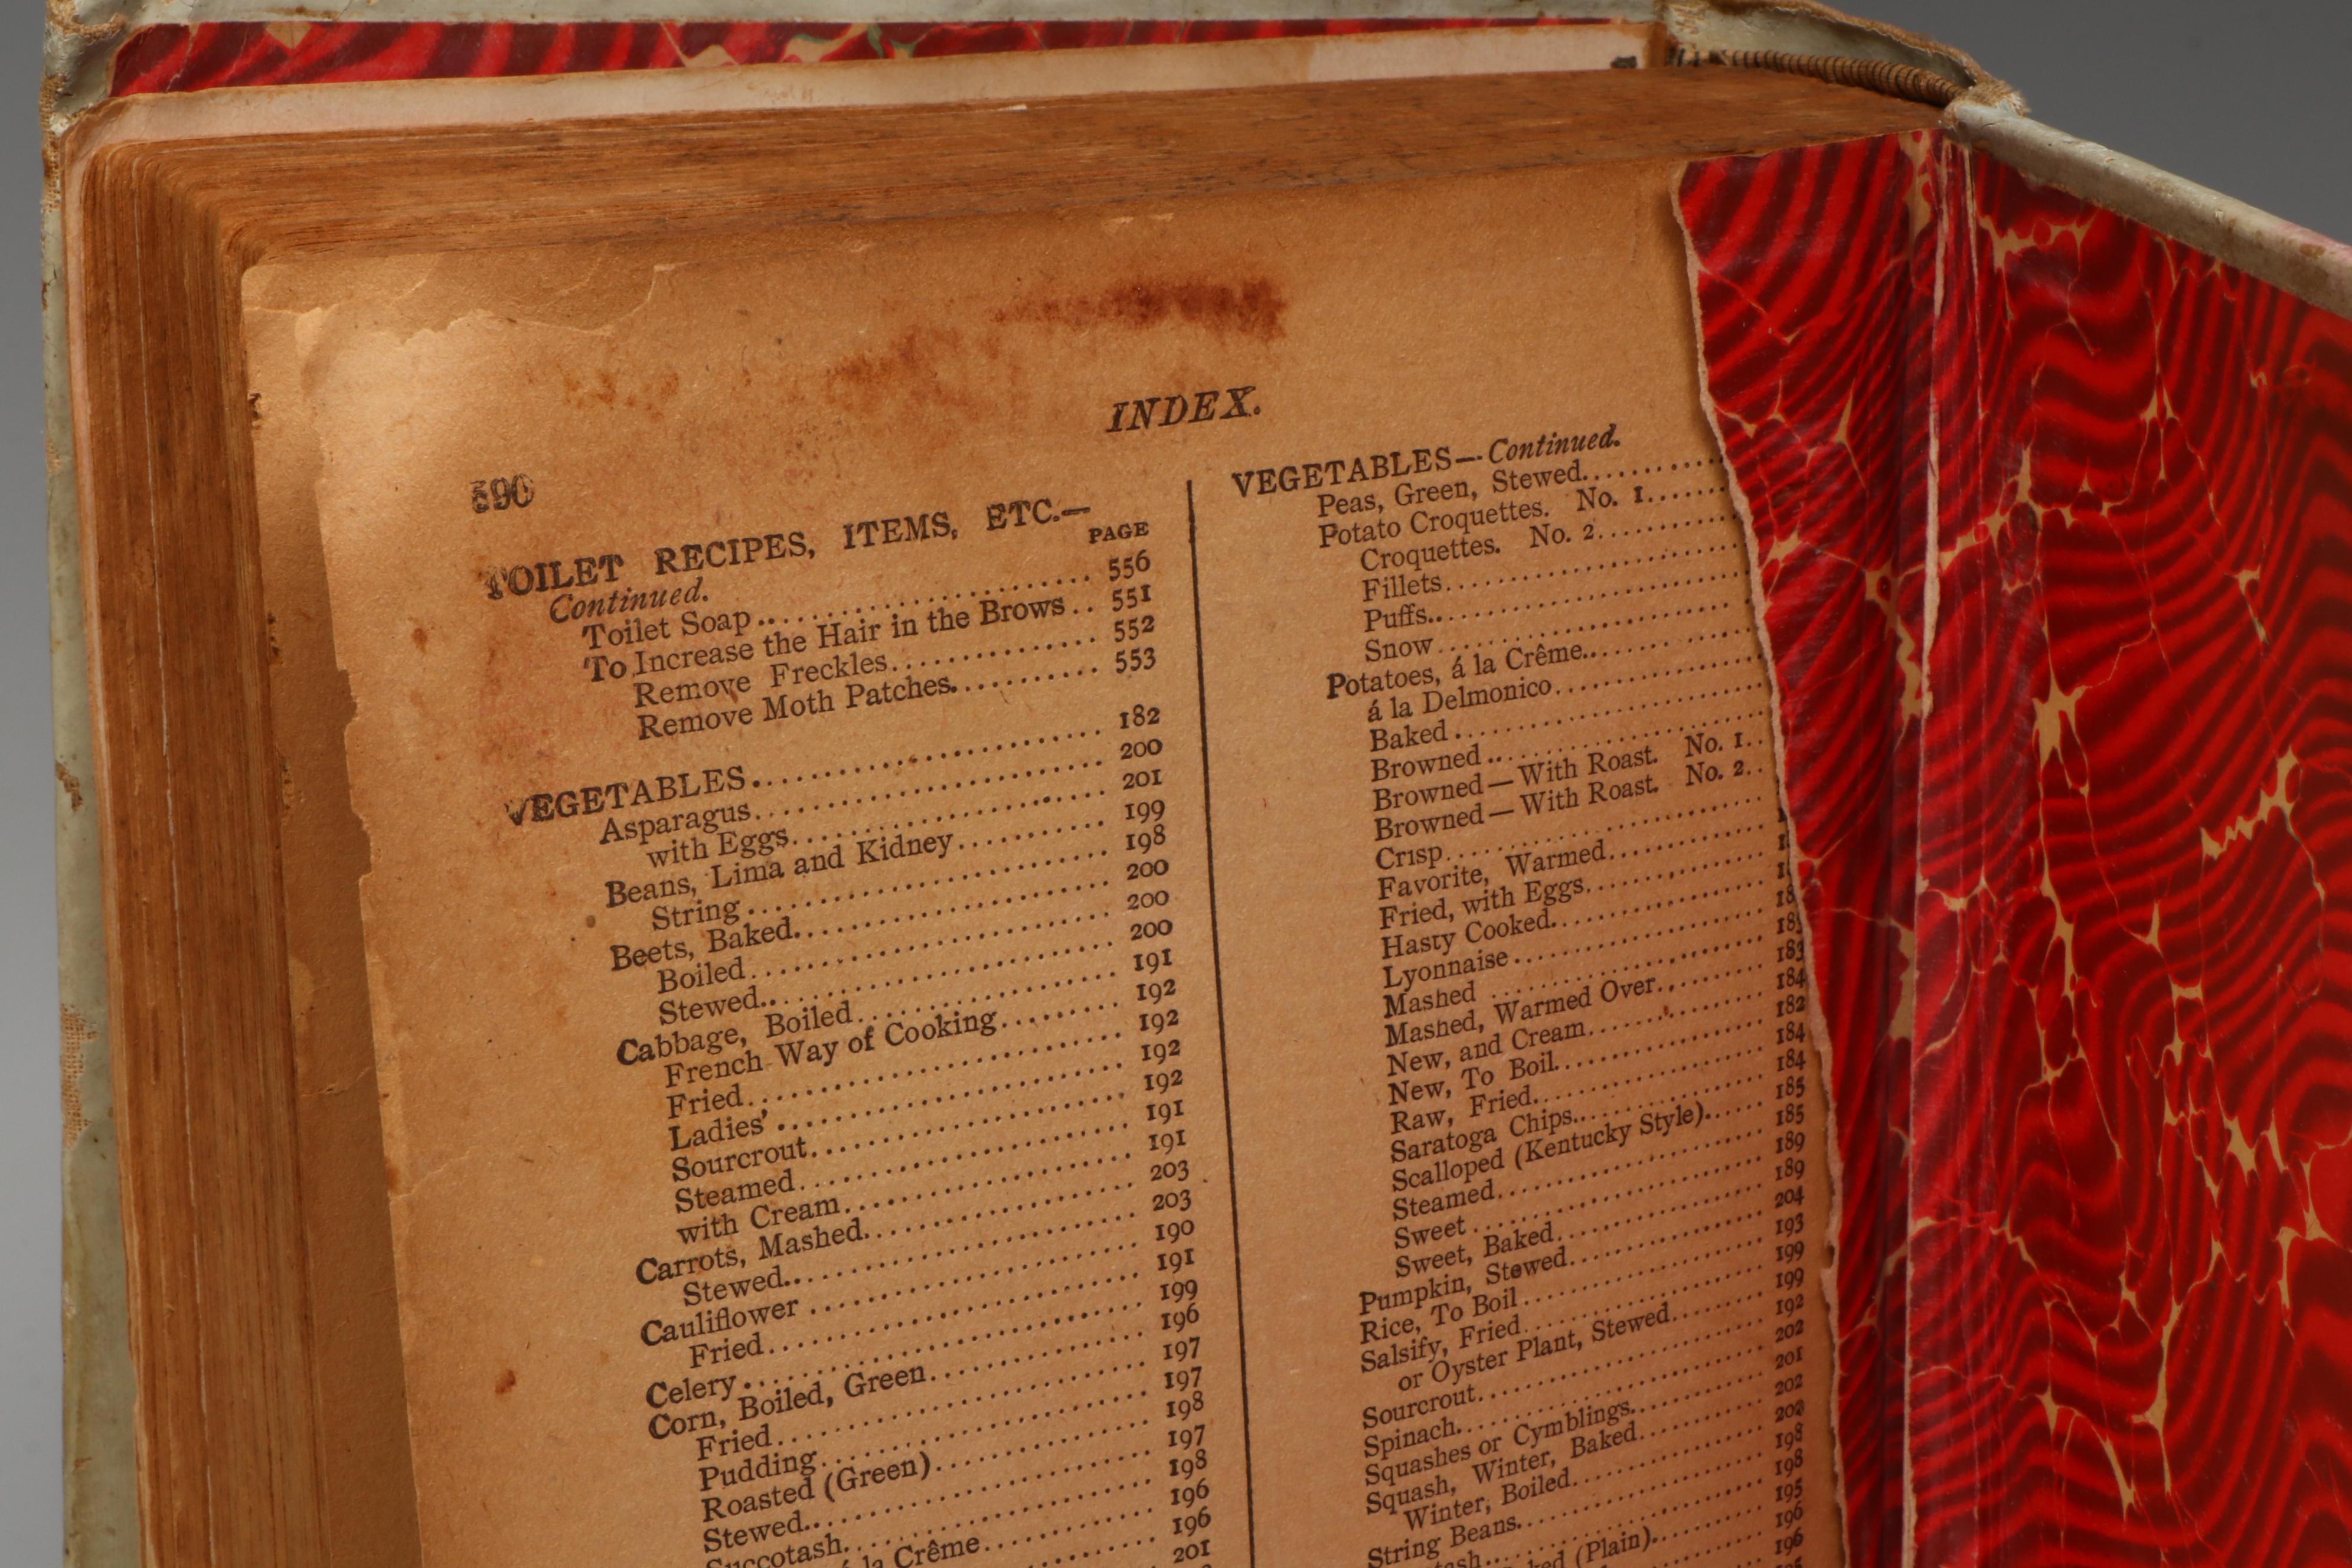 590
INDEX.
TOILET RECIPES, ITEMS, ETC.—
Continued. PAGE
Toilet Soap.............................. 556
To Increase the Hair in the Brows.. 551
Remove Freckles................ 552
Remove Moth Patches........... 553
VEGETABLES........................... 182
Asparagus........................... 200
with Eggs........................ 201
Beans, Lima and Kidney........... 199
String........................... 198
Beets, Baked........................ 200
Boiled........................... 200
Stewed........................... 200
Cabbage, Boiled..................... 191
French Way of Cooking......... 192
Fried........................... 192
Ladies'........................... 192
Sourcrout........................ 192
Steamed........................ 191
with Cream..................... 191
Carrots, Mashed..................... 203
Stewed........................... 203
Cauliflower ........................ 190
Fried........................... 191
Celery........................... 199
Corn, Boiled, Green............... 196
Fried........................... 197
Pudding........................ 197
Roasted (Green)............... 198
Stewed........................ 197
Succotash..................... 198
á la Crême............ 196
196
201
VEGETABLES—Continued.
Peas, Green, Stewed............
Potato Croquettes. No. 1.......
Croquettes. No. 2............
Fillets........................
Puffs........................
Snow........................
Potatoes, á la Crême............
á la Delmonico...............
Baked........................
Browned.....................
Browned—With Roast. No. 1..
Browned—With Roast. No. 2..
Crisp........................
Favorite, Warmed............
Fried, with Eggs...............
Hasty Cooked..................
Lyonnaise.....................
Mashed .....................
Mashed, Warmed Over......... 183
New, and Cream............... 184
New, To Boil.................. 182
Raw, Fried..................... 184
Saratoga Chips.................. 184
Scalloped (Kentucky Style)...... 185
Steamed........................ 185
Sweet ........................ 189
Sweet, Baked.................. 189
Pumpkin, Stewed.................. 204
Rice, To Boil..................... 193
Salsify, Fried..................... 199
or Oyster Plant, Stewed......... 199
Sourcrout........................ 192
Spinach........................ 202
Squashes or Cymblings............ 201
Squash, Winter, Baked............ 202
Winter, Boiled.................. 202
String Beans..................... 198
198
(Plain)............ 195
196
196